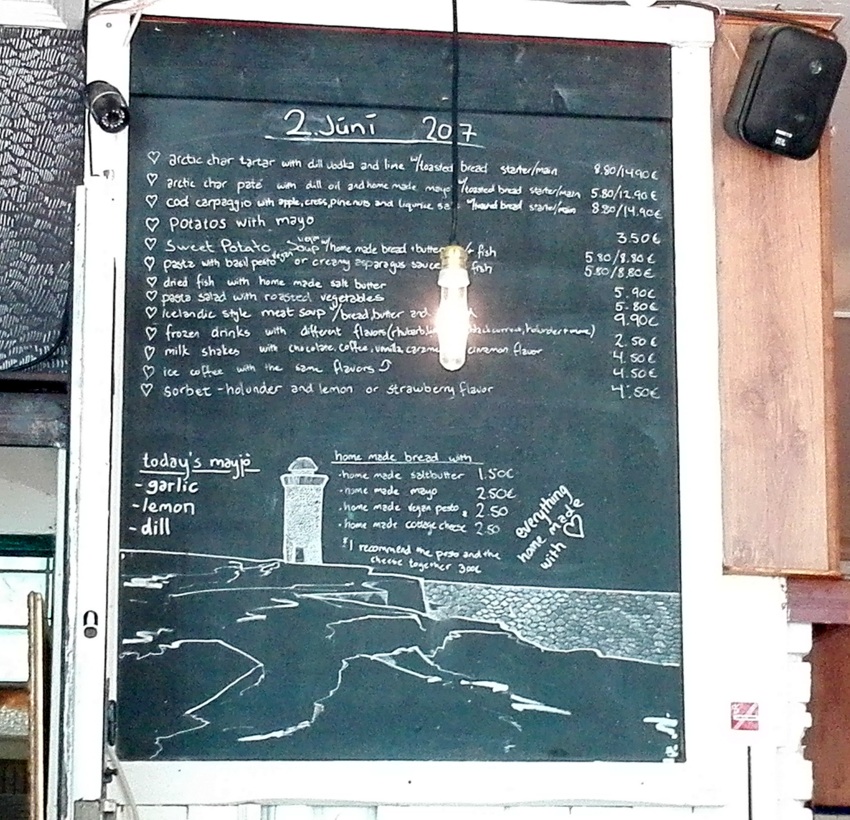 2. Júní 207
♡ arctic char tartar with dill vodka and lime w/toasted bread starter/main 8.80/14.90€
♡ arctic char paté with dill oil and home made mayo w/toasted bread starter/main 5.80/12.90€
♡ cod carpaggio with apple, cress, pine nuts and liqurice w/toasted bread starter/main 8.80/14.90€
♡ Potatos with mayo 3.50€
♡ Sweet Potato, Soup vegan w/home made bread + butter fish 5.80/8.80€
♡ pasta with basil pesto vegan or creamy asparagus sauce fish 5.80/8.80€
♡ dried fish with home made salt butter 5.90€
♡ pasta salad with roasted vegetables 5.80€
♡ Icelandic style meat soup w/bread, butter and 9.90€
♡ frozen drinks with different flavors (rhubarb, blackcurrant, holunder + more) 2.50€
♡ milk shakes with chocolate, coffee, vanilla, caramel cinamon flavor 4.50€
♡ ice coffee with the same flavors 4.50€
♡ sorbet - holunder and lemon or strawberry flavor 4.50€
today's mayjo
- garlic
- lemon
- dill
home made bread with
· home made saltbutter 1.50€
· home made mayo 2.50€
· home made vegan pesto 2.50
· home made cottage cheese 2.50
*I recommend the pesto and the
cheese together 3.00€
everything
home made
with ♡